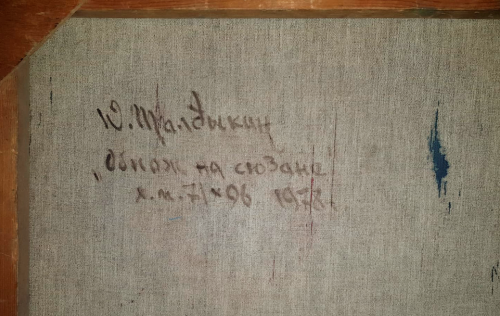 Ю. Талдыкин
„Обнаж на сюзане"
х.м. 71×96 1978.